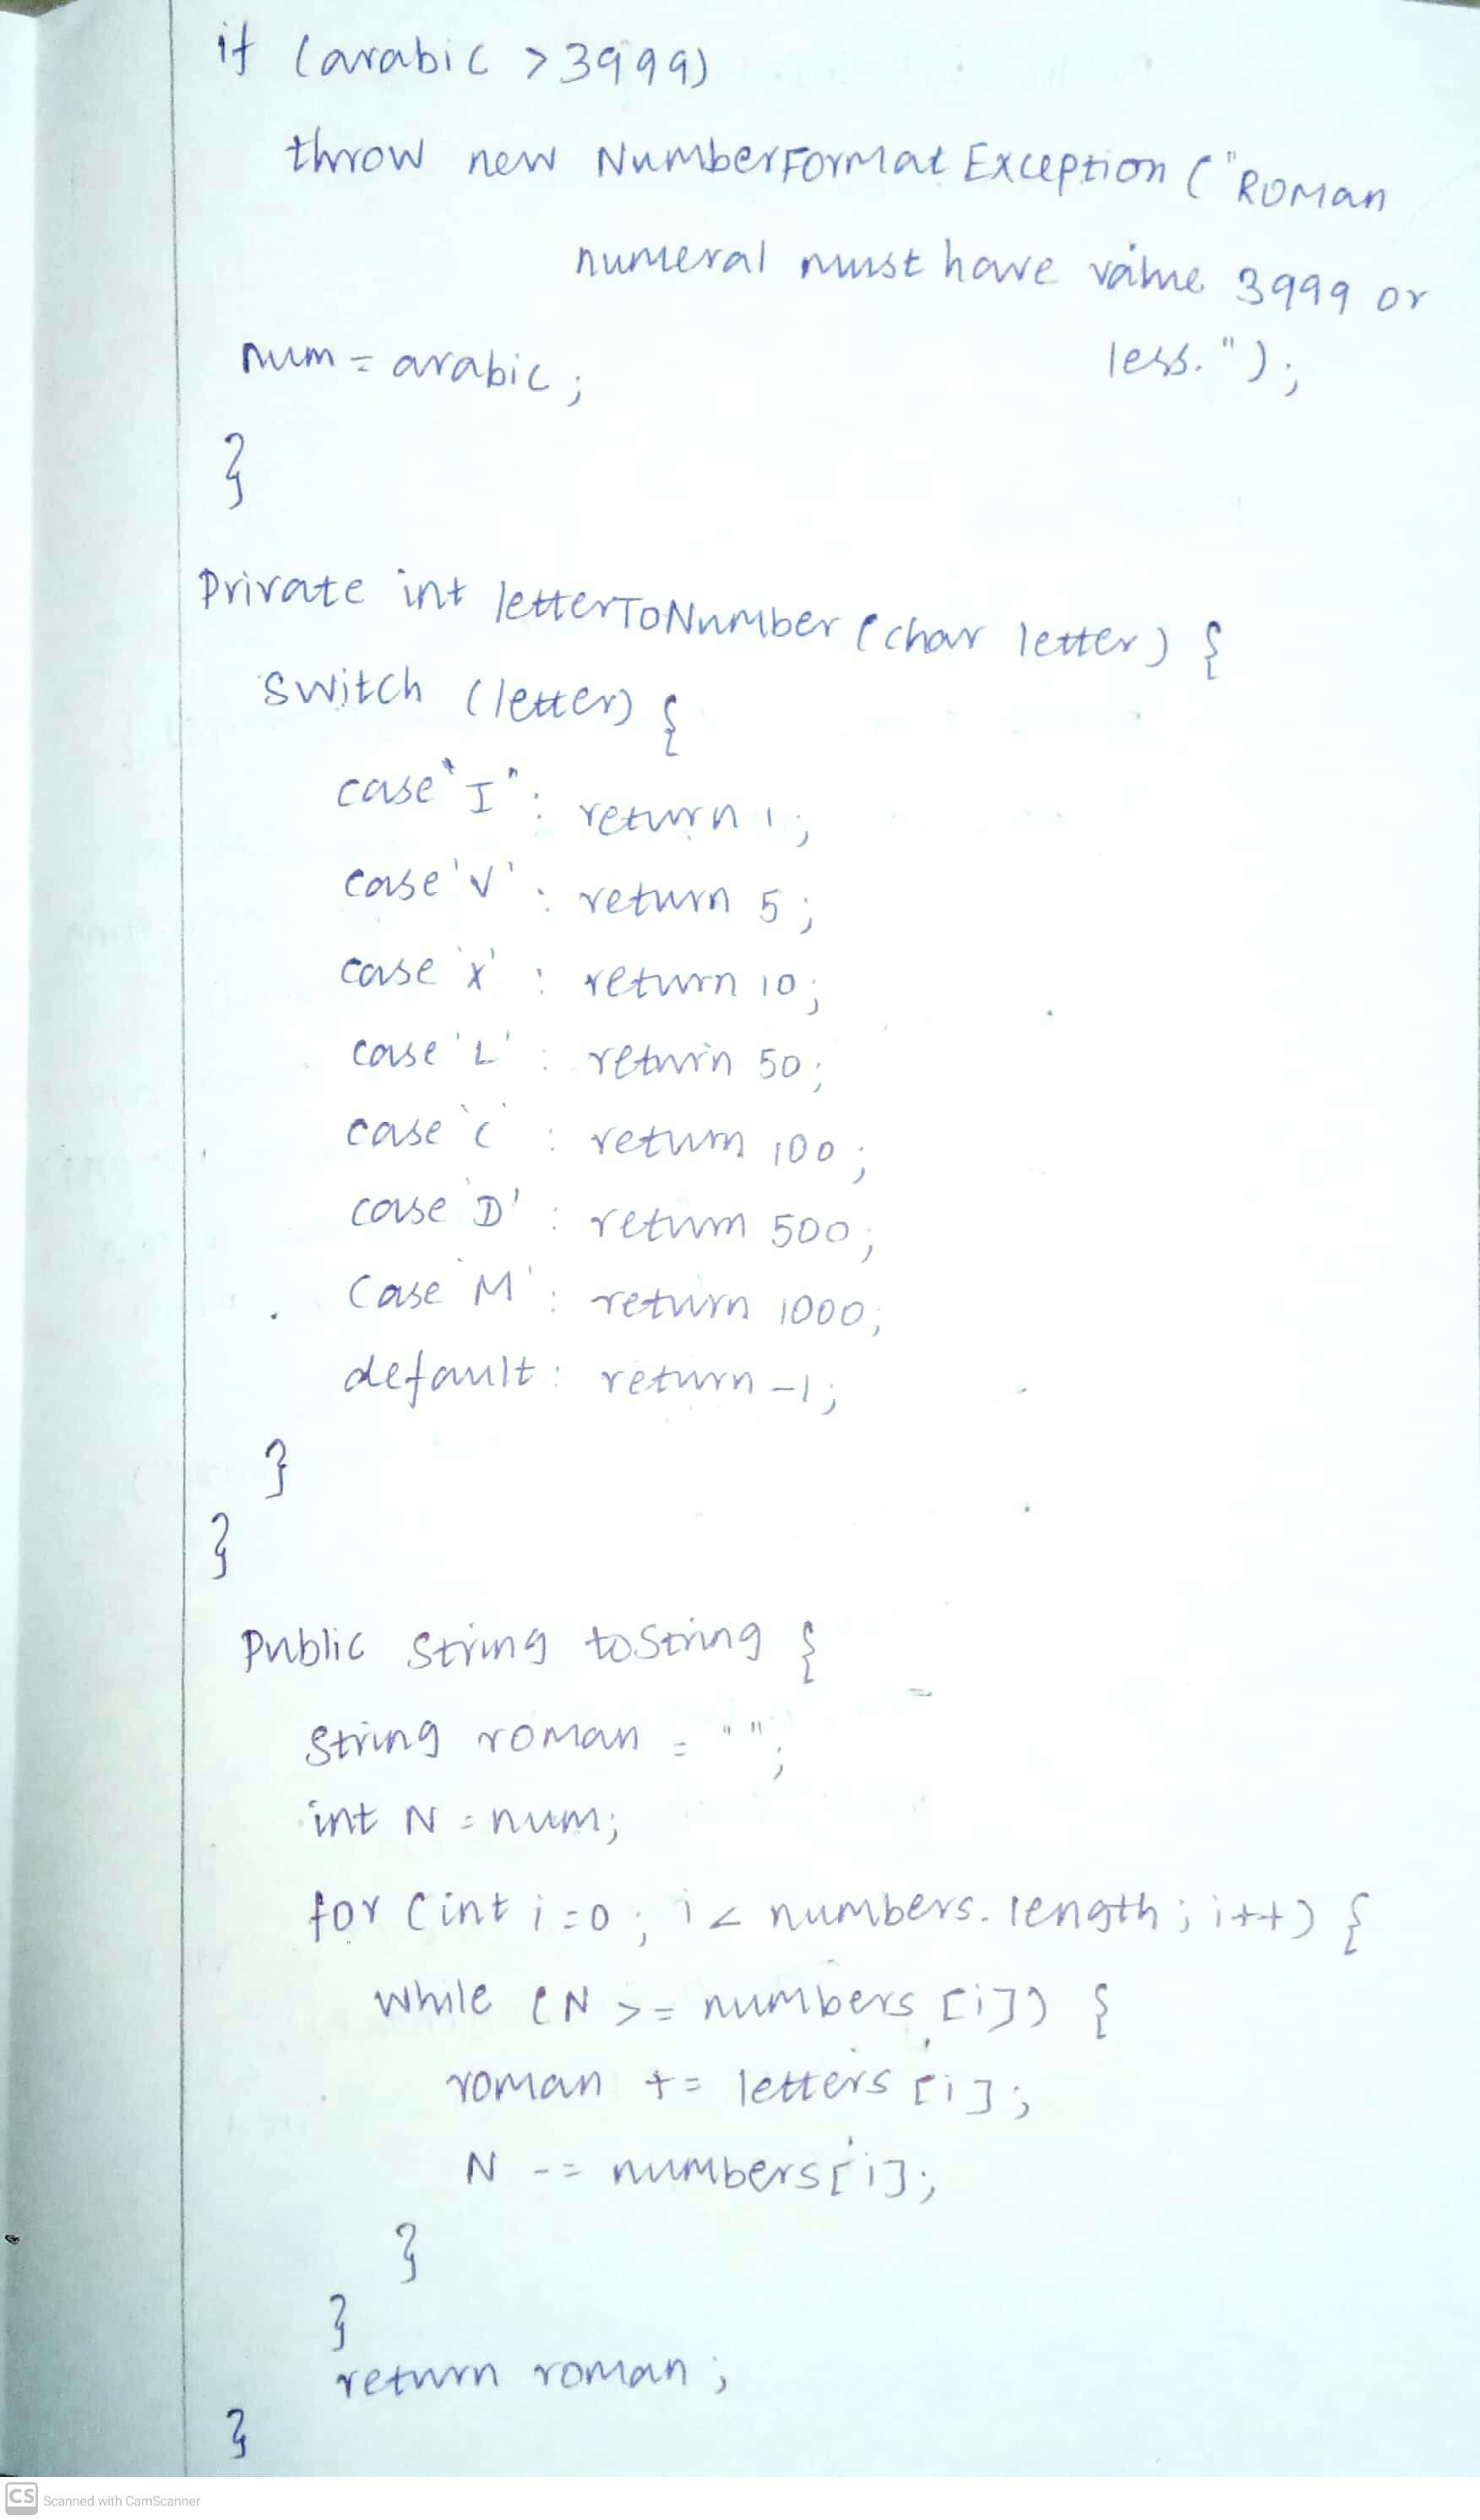 if (arabic > 3999)
throw new NumberFormat Exception ("Roman
numeral must have value 3999 or
less.");
num = arabic;
}
Private int letterToNumber (char letter) {
switch (letter) {
case "I" : return 1;
case 'V' : return 5;
case 'X' : return 10;
case 'L' : return 50;
case 'C' : return 100;
case 'D' : return 500;
Case 'M' : return 1000;
default : return -1;
}
}
Public String toString {
String roman = "";
int N = num;
for (int i=0; i < numbers.length; i++) {
while (N >= numbers [i]) {
roman += letters [i];
N -= numbers[i];
}
}
return roman;
}
CS Scanned with CamScanner